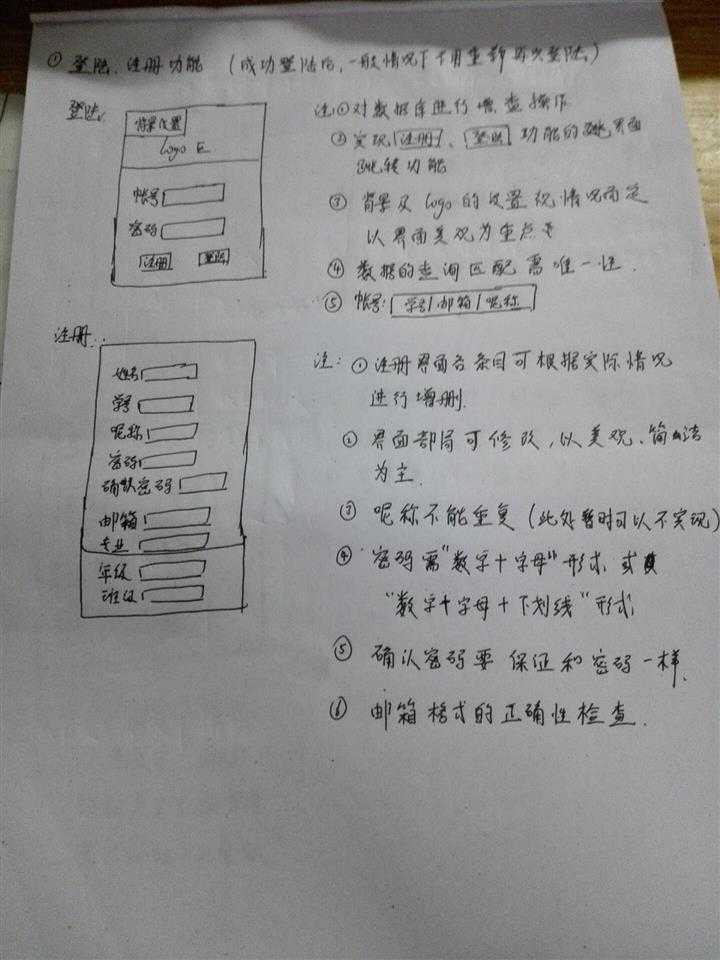 ① 登陆、注册功能 (成功登陆后,一般情况下不用重新再次登陆)
登陆:
背景设置
logo 区
帐号
密码
注册 登陆
注①对数据库进行增、查操作
②实现 注册、登陆 功能的跳界面
跳转功能
③ 背景及 logo 的设置视情况而定
以界面美观为重点
④ 数据的查询匹配需唯一性.
⑤ 帐号: 学号/邮箱/昵称
注册:
姓名
学号
昵称
密码
确认密码
邮箱
专业
年级
班级
注: ①注册界面各条目可根据实际情况
进行增删.
② 界面部局可修改,以美观、简洁
为主.
③ 昵称不能重复(此处暂时可以不实现)
④ 密码需"数字+字母"形式 或
"数字+字母+下划线"形式
⑤ 确认密码要保证和密码一样.
⑥ 邮箱格式的正确性检查.